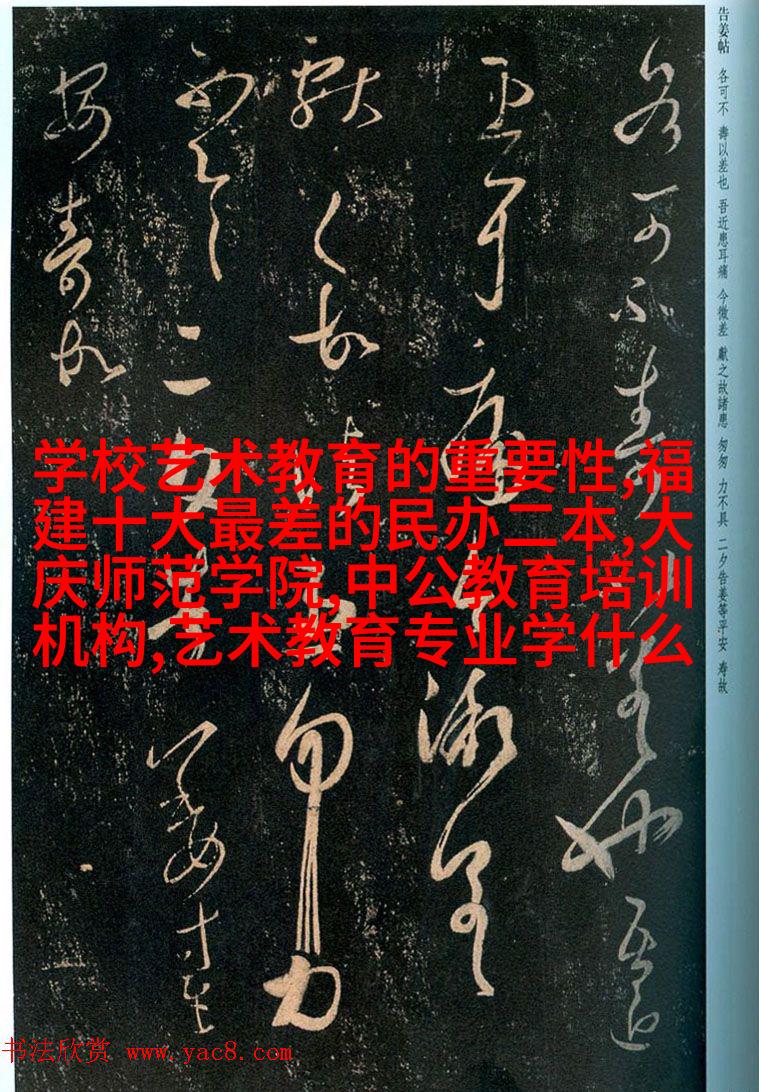 告姜帖 各可不 壽以差也 吾近患耳痛 今微差 獻之故諸患 匆匆 力不具 二夕告姜等平安 寿故
各可不
患耳痛今微差
獻之故
力
二夕告姜等
安寿故
学校艺术教育的重要性,福
建十大最差的民办二本,大
庆师范学院,中公教育培训
机构,艺术教育专业学什么
书法欣赏 www.yac8.com